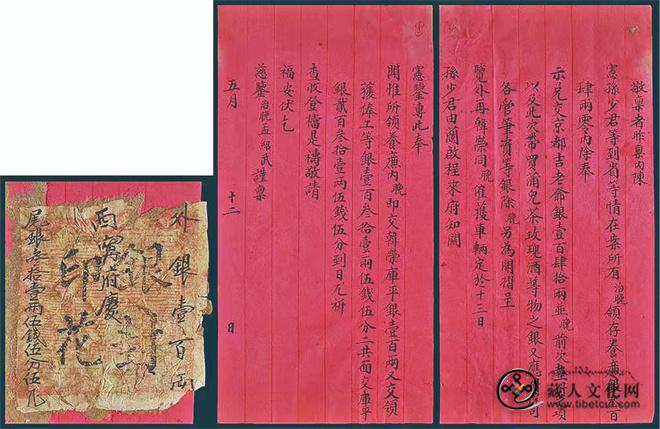 敬稟者昨稟內陳
憲孫少君等到省等情在案所有治晚領存養廉銀 百
肆兩零內除奉
示兌交京都吉老爺銀壹百肆拾兩並晚前次 項
以及此次帶買蒲兒茶玫瑰酒等物之銀又應 司
各管筆資等銀除晚另為開摺呈
覽外再韓榮同晚催獲車輛定於十三日
孫少君由蘭啟程來府知關
憲鑒專此奉
聞惟所領養廉內晚即交韓榮庫平銀壹百兩又交領
獲俸工等銀壹百叁拾壹兩伍錢伍分二共面交庫平
銀貳百叁拾壹兩伍錢伍分到日尤祈
查收登檔是禱敬請
福安伏乞
慈鑒治晚孟紹武謹稟
五月 十二 日
外銀壹百兩
銀封
西寧府慶
印花
尾銀叁拾壹兩伍錢伍分伍
藏人文化网
www.tibetcul.com